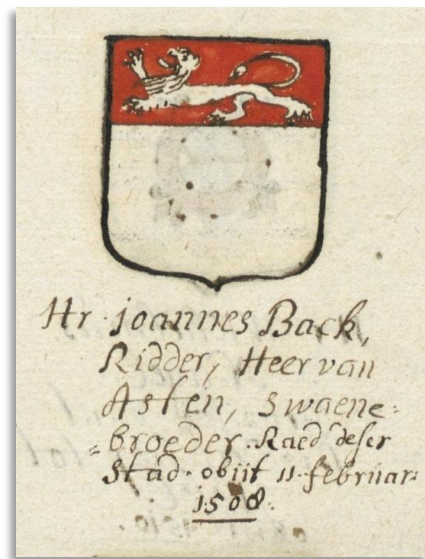 Hr. joannes Back,
Ridder, Heer van
Asten, swaene=
=broeder. Raed deser
Stad. obijt 11 februar:
1508.